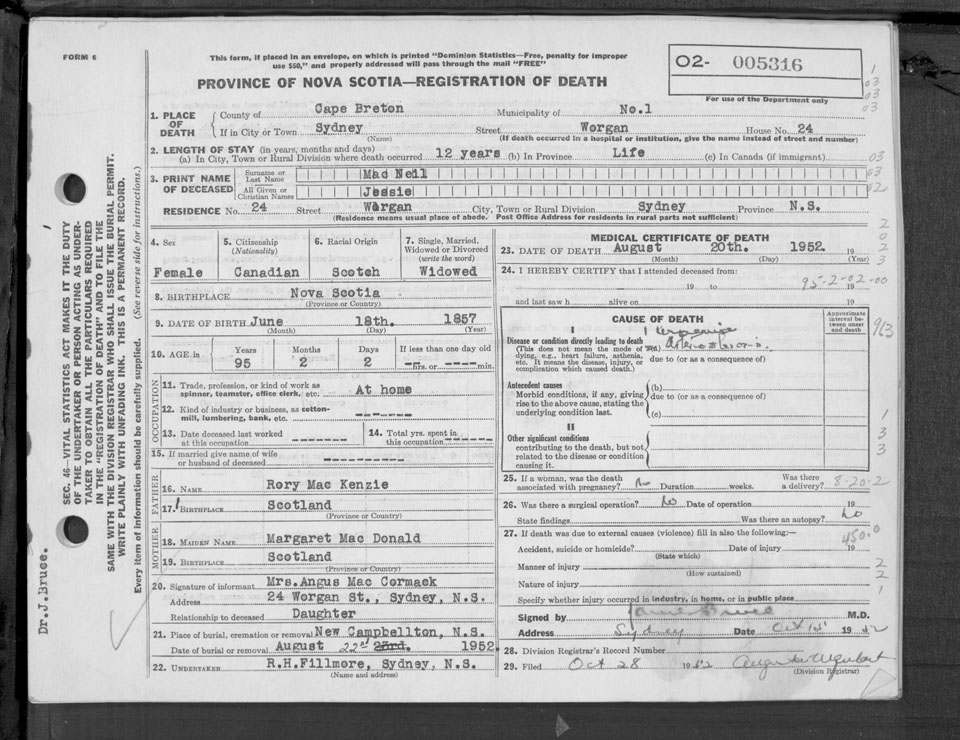 FORM 6
This form, if placed in an envelope, on which is printed "Dominion Statistics—Free, penalty for improper
use $50," and properly addressed will pass through the mail "FREE"
PROVINCE OF NOVA SCOTIA—REGISTRATION OF DEATH
O2- 005316
For use of the Department only
1. PLACE OF DEATH
County of Cape Breton Municipality of No.1
If in City or Town Sydney Street Worgan House No. 24
(Name) (If death occurred in a hospital or institution, give the name instead of street and number)
2. LENGTH OF STAY (in years, months and days)
(a) In City, Town or Rural Division where death occurred 12 years (b) In Province Life (c) In Canada (if immigrant)
3. PRINT NAME OF DECEASED
Surname or Last Name Mac Neil
All Given or Christian Names Jessie
RESIDENCE No. 24 Street Worgan City, Town or Rural Division Sydney Province N.S.
(Residence means usual place of abode. Post Office Address for residents in rural parts not sufficient)
4. Sex Female
5. Citizenship (Nationality) Canadian
6. Racial Origin Scotch
7. Single, Married, Widowed or Divorced (write the word) Widowed
8. BIRTHPLACE Nova Scotia
(Province or Country)
9. DATE OF BIRTH June 18th. 1857
(Month) (Day) (Year)
10. AGE in Years 95 Months 2 Days 2 If less than one day old hrs. or min.
OCCUPATION
11. Trade, profession or kind of work as
spinner, teamster, office clerk, etc. At home
12. Kind of industry or business, as cotton-
mill, lumbering, bank, etc.
13. Date deceased last worked
at this occupation
14. Total yrs. spent in
this occupation
15. If married give name of wife
or husband of deceased
FATHER
16. NAME Rory Mac Kenzie
17. BIRTHPLACE Scotland
(Province or Country)
MOTHER
18. MAIDEN NAME Margaret Mac Donald
19. BIRTHPLACE Scotland
(Province or Country)
20. Signature of informant Mrs.Angus Mac Cormack
Address 24 Worgan St., Sydney, N.S.
Relationship to deceased Daughter
21. Place of burial, cremation or removal New Campbellton, N.S.
Date of burial or removal August 22nd 23rd. 1952.
22. UNDERTAKER R.H.Fillmore, Sydney, N.S.
(Name and address)
MEDICAL CERTIFICATE OF DEATH
23. DATE OF DEATH August 20th. 1952. 19
(Month) (Day) (Year)
24. I HEREBY CERTIFY that I attended deceased from:
19 to 19
95-2-02-00
and last saw h alive on 19
CAUSE OF DEATH
Approximate interval between onset and death
I
Disease or condition directly leading to death
(This does not mean the mode of
dying, e.g., heart failure, asthenia,
etc. It means the disease, injury, or
complication which caused death.)
(a)
due to (or as a consequence of)
Antecedent causes
Morbid conditions, if any, giving
rise to the above cause, stating the
underlying condition last.
(b)
due to (or as a consequence of)
(c)
II
Other significant conditions
contributing to the death, but not
related to the disease or condition
causing it.
25. If a woman, was the death
associated with pregnancy? No Duration weeks. Was there
a delivery? 8-20-2
26. Was there a surgical operation? No Date of operation 19
State findings Was there an autopsy? No
27. If death was due to external causes (violence) fill in also the following:—
450.0
Accident, suicide or homicide? Date of injury 19
(State which)
Manner of injury
(How sustained)
Nature of injury
Specify whether injury occurred in industry, in home, or in public place
Signed by James Bruce M.D.
Address Sydney Date Oct 15 1952
28. Division Registrar's Record Number
29. Filed Oct 28 1952
(Division Registrar)
SEC. 46—VITAL STATISTICS ACT MAKES IT THE DUTY
OF THE UNDERTAKER OR PERSON ACTING AS UNDER-
TAKER TO OBTAIN ALL THE PARTICULARS REQUIRED
IN THE "REGISTRATION OF DEATH" AND TO FILE THE
SAME WITH THE DIVISION REGISTRAR WHO SHALL ISSUE THE BURIAL PERMIT.
WRITE PLAINLY WITH UNFADING INK. THIS IS A PERMANENT RECORD.
Every item of information should be carefully supplied. (See reverse side for instructions.)
Dr.J.Bruce.
1
03
03
03
03
03
02
2
0
2
3
913
1
3
3
2
2
1